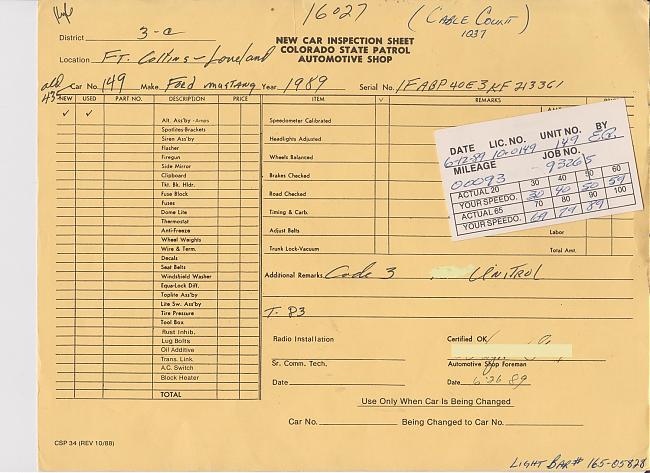 16027
(CABLE COUNT)
1037
District 3-C
NEW CAR INSPECTION SHEET
COLORADO STATE PATROL
AUTOMOTIVE SHOP
Location FT. Collins - Loveland
old 435
Car No. 149 Make Ford Mustang Year 1989 Serial No. 1FABP40E3KF213361
NEW USED PART NO. DESCRIPTION PRICE ITEM REMARKS
✓ ✓
Alt. Ass'by - Amps
Spotlites-Brackets
Siren Ass'by
Flasher
Firegun
Side Mirror
Clipboard
Tkt. Bk. Hldr.
Fuse Block
Fuses
Dome Lite
Thermostat
Anti-Freeze
Wheel Weights
Wire & Term.
Decals
Seat Belts
Windshield Washer
Equa-Lock Diff.
Toplite Ass'by
Lite Sw. Ass'by
Tire Pressure
Tool Box
Rust Inhib.
Lug Bolts
Oil Additive
Trans. Link.
A.C. Switch
Block Heater
TOTAL
Speedometer Calibrated
Headlights Adjusted
Wheels Balanced
Brakes Checked
Road Checked
Timing & Carb.
Adjust Belts
Trunk Lock-Vacuum
Labor
Total Amt.
DATE LIC. NO. UNIT NO. BY
6-12-89 10-0149 149 E.G.
MILEAGE JOB NO.
00093 93265
ACTUAL 20 30 40 50 60
YOUR SPEEDO. 30 40 50 59
ACTUAL 65 70 80 90 100
YOUR SPEEDO. 69 79 89
Additional Remarks Code 3 UNITROL
T-83
Radio Installation
Certified OK
Sr. Comm. Tech.
Automotive Shop Foreman
Date
Date 6-26-89
Use Only When Car Is Being Changed
Car No. Being Changed to Car No.
CSP 34 (REV 10/88)
LIGHT BAR# 165-05828